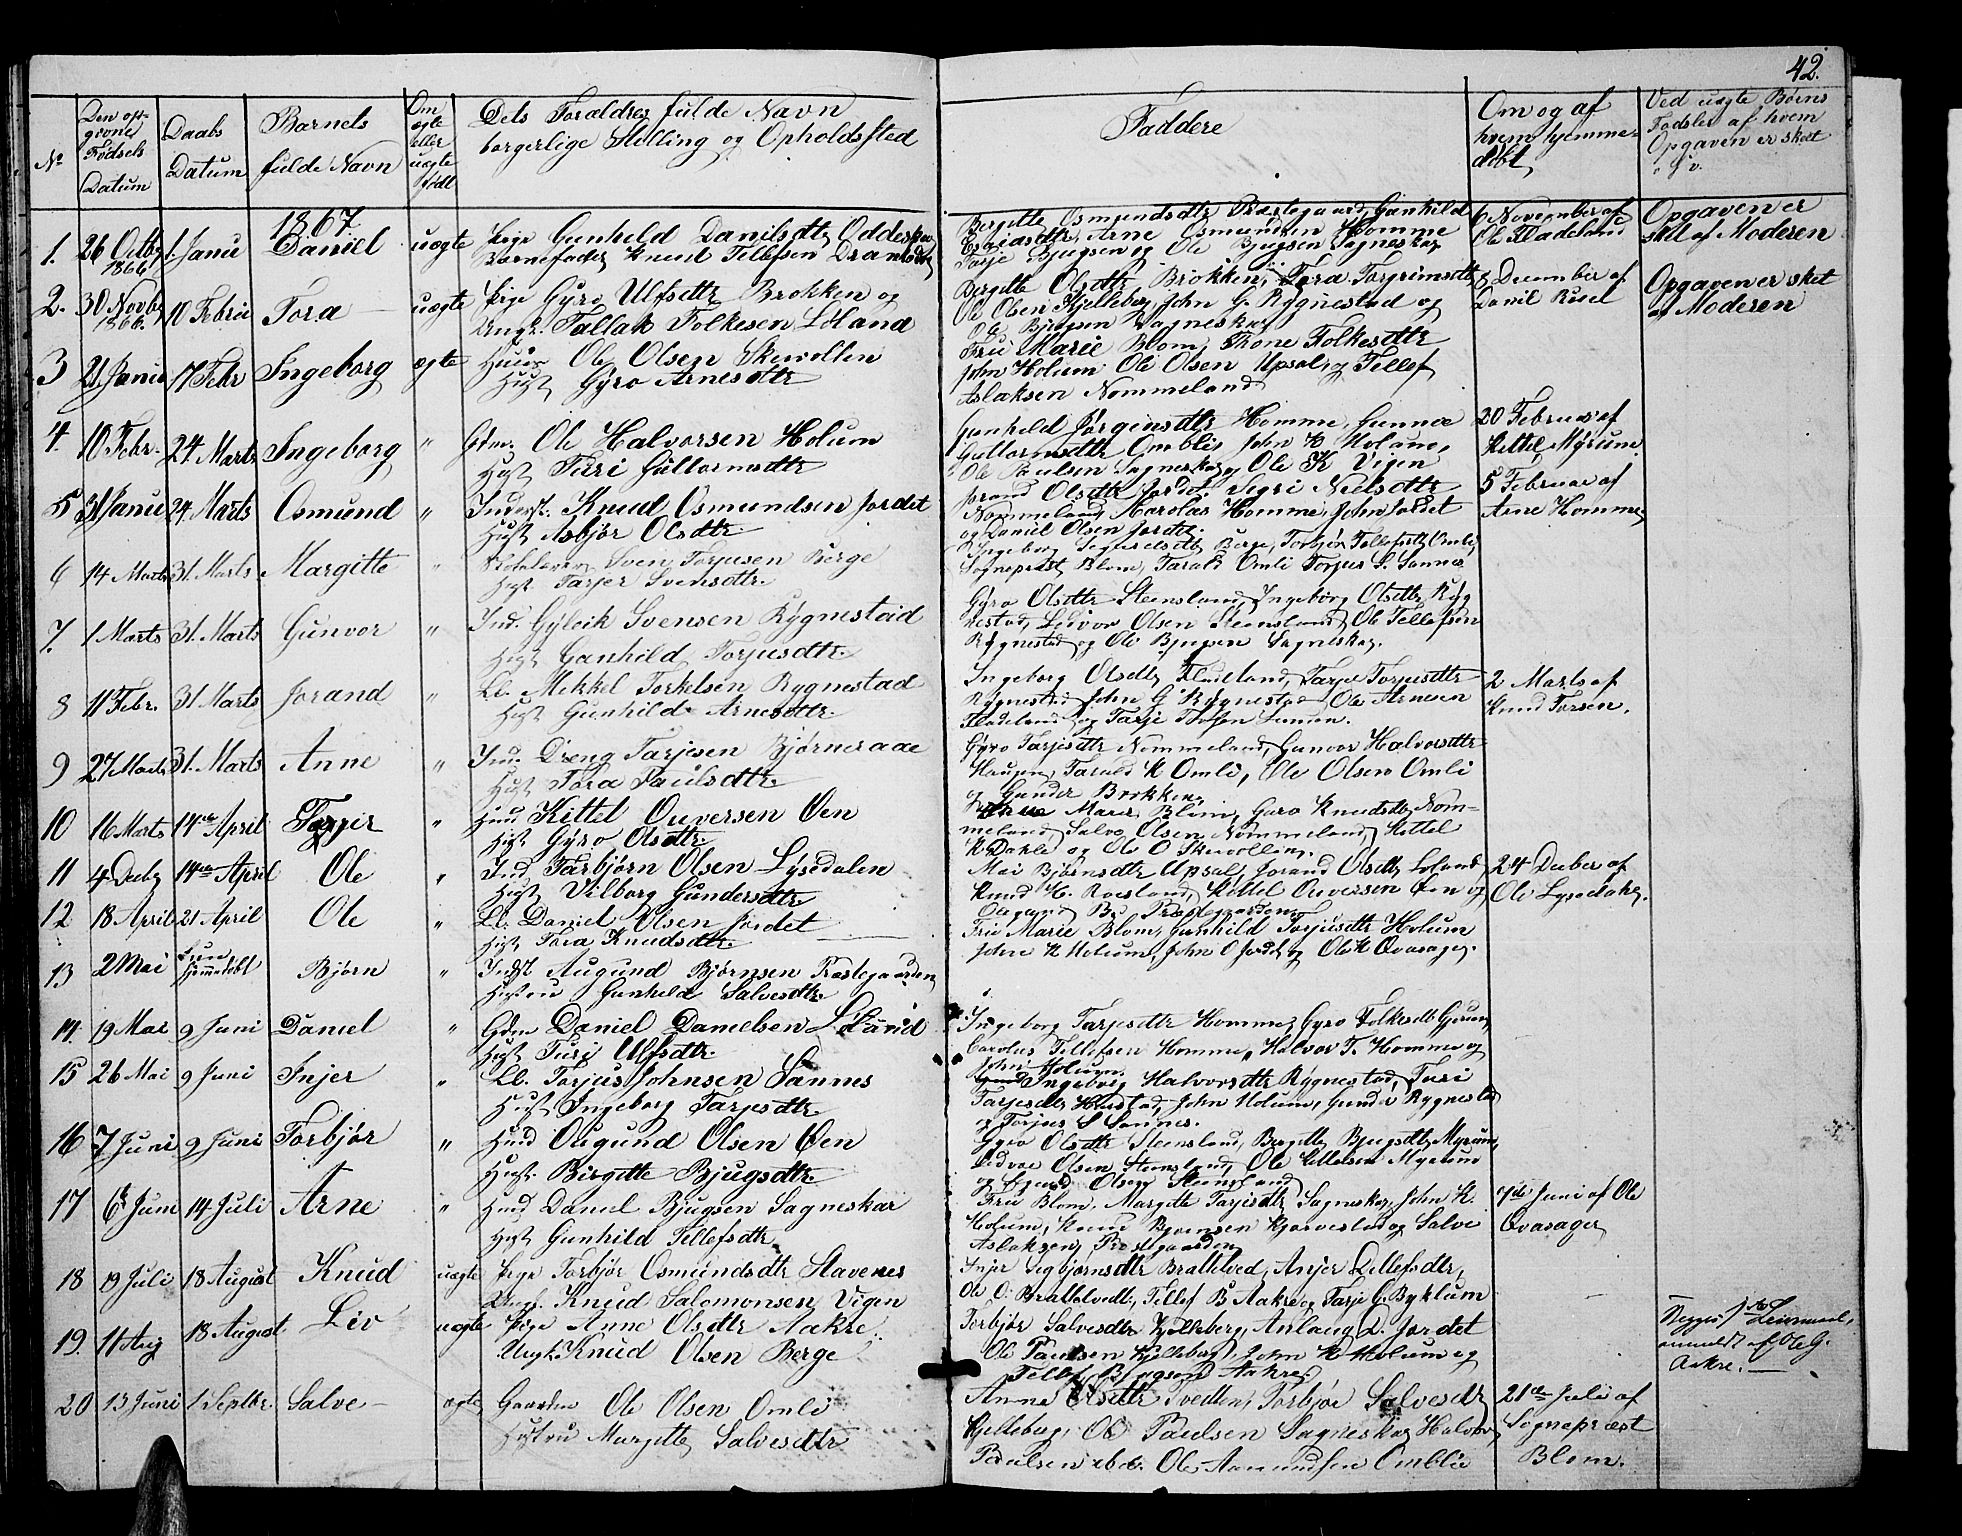 42.
No
Den opgivne Fødsels Datum
Daabs Datum
Barnets fulde Navn
Om ægte eller uægte født
Dets Forældres fulde Navn borgerlige Stilling og Opholdssted
Faddere
Om og af hvem hjemmedøbt
Ved uægte Børns Fødsler af hvem Opgaven er skeet o. s. v.
1867.
1. 26 Octbr 1866 1. Janu Daniel uægte Pige Gunhild Danilsdtr Oddeskar
Barnefader Knud Tellefsen
Bergitte Osmundsdtr Præstegaard, Gunhild
Esaiasdttr, Arne Osmundsen Homme
Tarje Bjugsen og Ole Bjugsen Sagneskar
6 November af
Ole Fladeland
Opgaven er
sket af Moderen
2. 30 Novbr 1866. 10 Febru Tora uægte Pige Gyro Ulfsdtr Brokken og
Ungk. Tallak Folkesen Løland
Bergitte Olsdtr Brokken, Tora Torgrimsdtr
Ole Olsen Kjelleberg, John G. Rygnestad og
Ole Bjugsen Sagneskar
8 December af
Danil Rised
Opgaven er sket
af Moderen
3 21 Janu 17 Febr Ingeborg ægte Ole Olsen Skevollen
Hust Gyro Arnesdtr
Fru Marie Blom, Tone Folkesdtr
John Holum Ole Olsen Upsal, og Tellef
Aslaksen Nommeland
4. 10 Febr. 24 Marts Ingeborg " Gdm. Ole Halvorsen Holum
Hust Turi Guttormsdtr
Gunhild Jørgensdtr Homme, Gunner
Guttormsdtr Omblie, John K Holum,
Ole Paulsen Sagneskar og Ole K Vigen
20 Februar af
Kittel Myrum
5 31 Janu 24 Marts Osmund " Inderst. Knud Osmundsen Jordet
Hust Asbjør Olsdtr.
Jorand Olsdtr Jordet. Sigri Nielsdtr
Nommeland Karolus Homme, John Jordet
og Daniel Olsen Jordet
5 Februar af
Arne Homme
6 14 Marts 31. Marts Margitte " Skolelærer Sven Torjusen Berge
Hust. Tarjer Svensdtr.
Ingeborg Sigurdsdtr Berge, Torbjør Tellefsdtr Omli
Sognepræst Blom, Tarald Omli Torjus S. Sannes
7. 1 Marts 31. Marts Gunvor " Ind. Gyleik Svensen Rygnestad
Hust Gunhild Torjusdtr.
Gyro Olsdtr Steensland, Ingeborg Olsdtr Ryg
nestad, Leidvor Olsen Steensland, Ole Tellefsen
Rygnestad og Ole Bjugsen Sagneskar.
8 11 Febr. 31 Marts Jorand " Lb. Mikkel Torkelsen Rygnestad
Hust. Gunhild Arnesdtr.
Ingeborg Olsdtr Fladeland, Tarjer Torjusdtr
Rygnestad, John G Rygnestad Ole Arnesen
Fladeland og Tarje
2 Marts af
Knud Tarsen.
9 27 Marts 31. Marts Anne " Ind. Dreng Tarjesen Bjørneraae
Hust Tora Paulsdtr.
Gyro Tarjesdtr Nommeland, Gunvor Halvorsdtr
Haugen, Tarald K Omli, Ole Olsen Omli
og Gunder Brokken
10 16 Marts 14de April Tarjer " Husd Kittel Ouversen Øen
Hust Gyro Olsdtr.
Marie Blom, Gyro Knudsdtr Nom-
meland, Salve Olsen Nommeland Kittel
K Dahle og Ole O Skevollen.
11 4 Decbr 14de April Ole " Ind Tarbjørn Olsen Lysedalen
Hust Vilborg Gundersdtr.
Mari Bjørnsdtr Upsal, Jorand Olsdtr Løland
Knud H. Roesland, Kittel Ouversen Øen og
Ougund Bu Præstegaarden
24 Decber af
Ole Lysedalen.
12 18 April 21 April Ole " Lb. Daniel Olsen Jordet
Hust Tora Knudsdtr.
Fru Marie Blom, Gunhild Torjusdtr Holum
John K Holum, John O Jordet og Ole K Qvasager.
13 2 Mai hjemmedøbt Bjørn " Indst Augund Bjørnsen Præstegaarden
Hustru Gunhild Salvesdtr
14. 19 Mai 9 Juni Daniel " Gdm Daniel Danielsen
Hust Turi Ulfsdtr.
Ingeborg Tarjesdtr Homme, Gyro Folkesdtr
Carolus Tellefsen Homme, Halvor T. Homme og
John Holum.
15 26 Mai 9 Juni Injer " Lb. Torjus Johnsen Sannes
Hust Ingeborg Tarjesdtr.
Ingeborg Halvorsdtr Rygnestad, Turi
Tarjesdtr Harstad, John Holum, Gunder Rygnestad
og Torjus S Sannes.
16 7 Juni 9 Juni Torbjør " Husd Ougund Olsen Øen
Hust. Birgitte Bjugsdtr
Gyro Olsdtr Steensland, Bergitte Bjugsdtr Myrum,
Leidvor Olsen Steensland, Ole Kittelsen Myrum
og Olsen Stensland
17 6 Juni 14 Juli Arne " Husd Daniel Bjugsen Sagneskar
Hust Gunhild Tellefsdtr
Fru Blom, Margitte Tarjesdtr Sagneskar, John K.
Holum, Knud Bjørnsen og Salve
Aslaksen Præstegaarden
7de Juni af Ole
Qvasager
18 19 Juli 18 August Knud uægte Pige Torbjør Osmundsdtr Stavenes
Ungk. Knud Salomonsen Vigen
Injer Sigbjørnsdtr Brattelved, Anjer Tellefsdtr,
Ole O. Brattelvedt, Tellef B Aakre og Tarje G. Byklum
19. 11 Aug 18 August Liv uægte Pige Anne Olsdtr Aakre
Ungk. Knud Olsen Berge
Torbjør Salvesdtr Kjelleberg, Anlaug D. Jordet
Ole Paulsen Kjelleberg, John K Holum og
Tellef Bjugsen Aakre
Leiermaal,
anmeldt af Ole G.
Aakre.
20 13 Juni 1 Septbr. Salve ægte Gaardm Ole Olsen Omli
Hustru Margitte Salvesdtr
Anne Olsdtr Tvedten, Torbjør Salvesdtr
Kjelleberg, Ole Paulsen Sagneskar Halvor
Paulsen ibd. Ole Aamundsen Omblie
21de Juli af
Sognepræst
Blom.